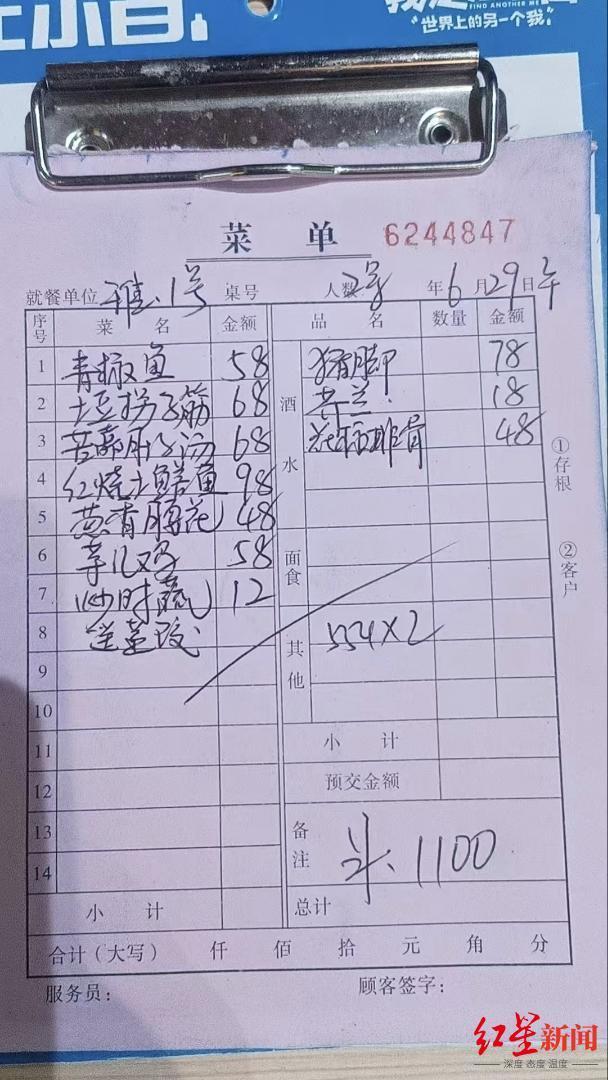 "世界上的另一个我"
FIND ANOTHER ME
菜 单 6244847
就餐单位 雅.1号 桌号 人数 2号 年 6 月 29 日 午
序号 菜 名 金额 品 名 数量 金额
1 青椒鱼 58 猪脚 78
2 土豆拐子筋 68 芥兰. 18
酒水
3 苦菊肝汤 68 排骨 48
4 红烧土鳝鱼 98
5 葱香腰花 48
6 芋儿鸡 58 面食
7 炒时蔬 12
8 送 其他 554×2
9
10
11 小 计
12 预交金额
13 备注 1100
14
小 计 总计
合计(大写) 仟 佰 拾 元 角 分
服务员: 顾客签字:
①存根
②客户
红星新闻
深度 态度 温度